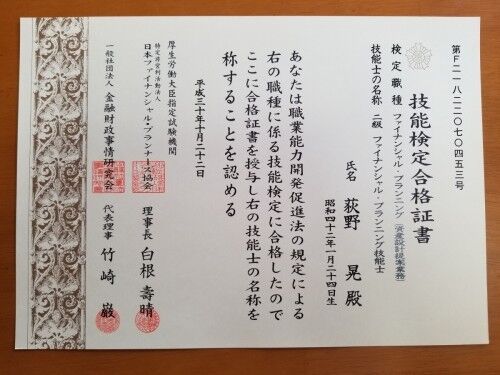 第F二一八二二〇七〇四五三号
技能検定合格証書
検定職種 ファイナンシャル・プランニング(資産設計提案業務)
技能士の名称 二級 ファイナンシャル・プランニング技能士
氏名 荻野 晃 殿
昭和四十二年一月二十四日生
あなたは職業能力開発促進法の規定による
右の職種に係る技能検定に合格したので
ここに合格証書を授与し右の技能士の名称を
称することを認める
平成三十年十月二十二日
厚生労働大臣指定試験機関
特定非営利活動法人
日本ファイナンシャル・プランナーズ協会 理事長 白根 壽晴
一般社団法人 金融財政事情研究会 代表理事 竹崎 巌